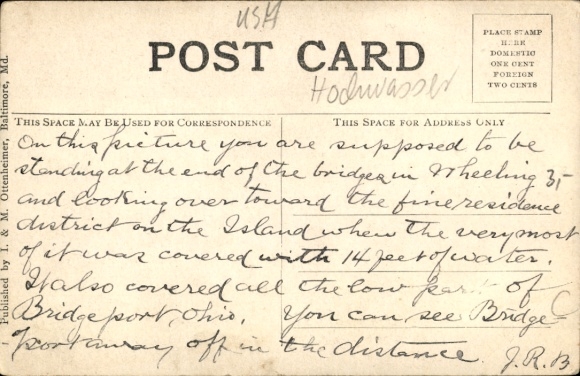 USA
POST CARD
PLACE STAMP
HERE
DOMESTIC
ONE CENT
FOREIGN
TWO CENTS
Hochwasser
THIS SPACE MAY BE USED FOR CORRESPONDENCE
THIS SPACE FOR ADDRESS ONLY
On this picture you are supposed to be
standing at the end of the bridge in Wheeling
3,-
and looking over toward the fine residence
district on the Island when the very most
of it was covered with 14 feet of water.
It also covered all the low part of
Bridgeport, Ohio. You can see Bridge-
port away off in the distance. J. R. B
Published by I. & M. Ottenheimer, Baltimore, Md.